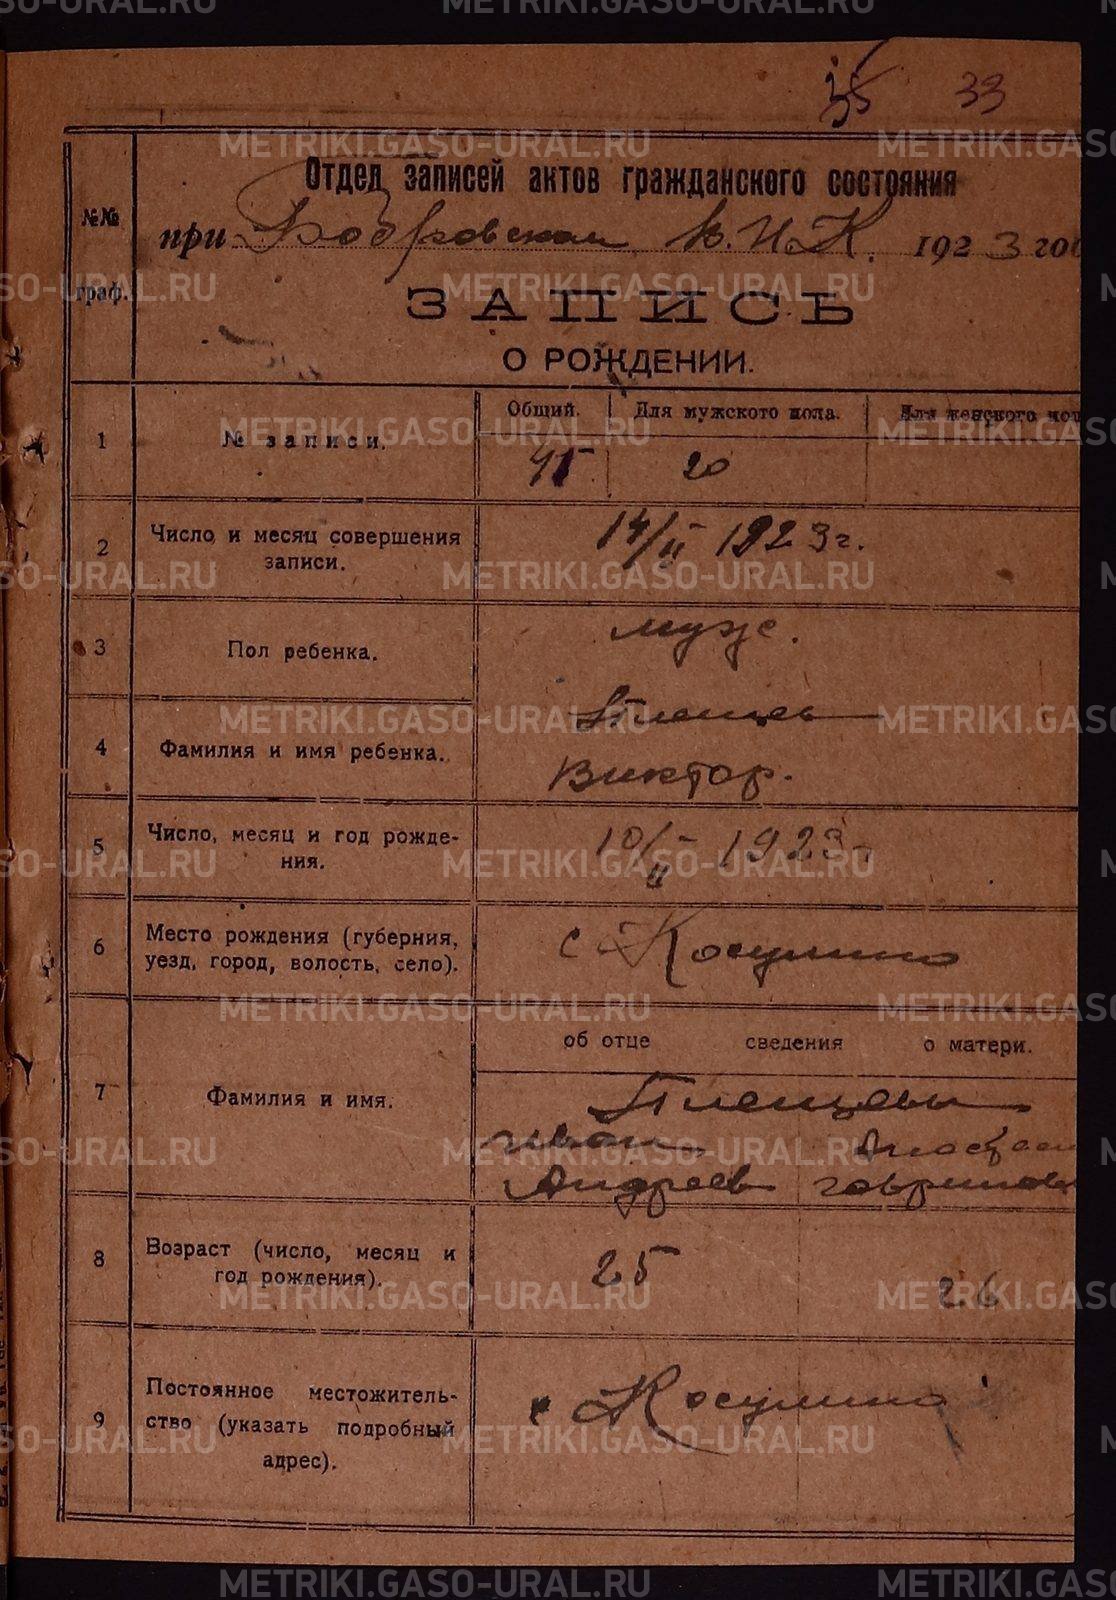 33
Отдел записей актов гражданского состояния
при Бобровском В.И.К. 1923 год
№№ граф.
ЗАПИСЬ
О РОЖДЕНИИ.
Общий. Для мужского пола. Для женского пол
1 № записи. 45 20
2 Число и месяц совершения записи. 14/II 1923 г.
3 Пол ребенка. муже.
4 Фамилия и имя ребенка. Пленцев
Виктор.
5 Число, месяц и год рождения. 10/II 1923 г
6 Место рождения (губерния, уезд, город, волость, село). с Косулино
об отце сведения о матери.
7 Фамилия и имя. Пленцевы
Иван Анастаси
Андреев Гаврилов
8 Возраст (число, месяц и год рождения). 25 26
9 Постоянное местожительство (указать подробный адрес). с Косулино
METRIKI.GASO-URAL.RU